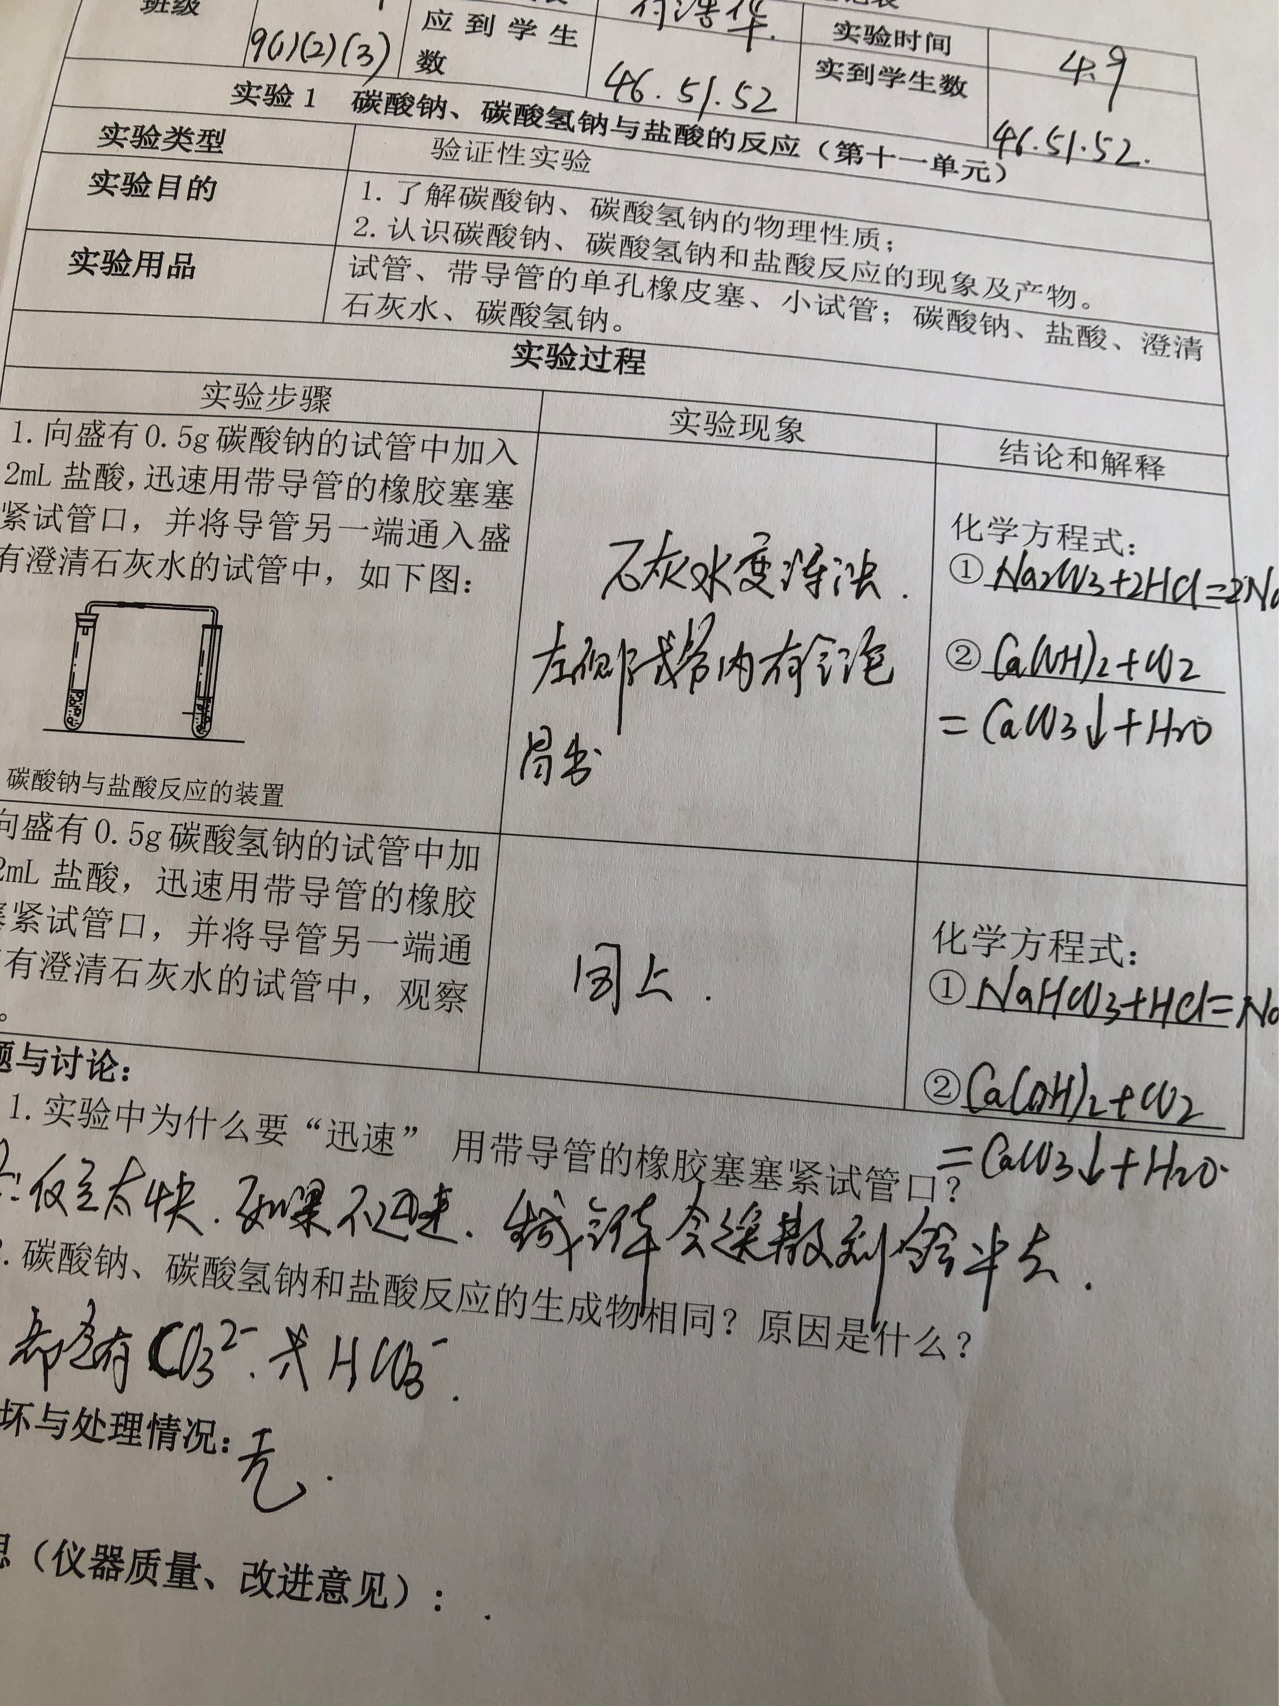 班级
9(1)(2)(3)
应到学生数
46.51.52
实验时间
4.9
实到学生数
46.51.52.
实验1 碳酸钠、碳酸氢钠与盐酸的反应（第十一单元）
实验类型
验证性实验
实验目的
1.了解碳酸钠、碳酸氢钠的物理性质；
2.认识碳酸钠、碳酸氢钠和盐酸反应的现象及产物。
实验用品
试管、带导管的单孔橡皮塞、小试管；碳酸钠、盐酸、澄清
石灰水、碳酸氢钠。
实验过程
实验步骤
实验现象
结论和解释
1.向盛有0.5g碳酸钠的试管中加入
2mL 盐酸，迅速用带导管的橡胶塞塞
紧试管口，并将导管另一端通入盛
有澄清石灰水的试管中，如下图：
碳酸钠与盐酸反应的装置
石灰水变浑浊.
左侧试管内有气泡
冒出
化学方程式：
① Na2CO3+2HCl=2Na
② Ca(OH)2+CO2
=CaCO3↓+H2O
向盛有0.5g碳酸氢钠的试管中加
2mL 盐酸，迅速用带导管的橡胶
塞紧试管口，并将导管另一端通
有澄清石灰水的试管中，观察
。
同上.
化学方程式：
① NaHCO3+HCl=Na
② Ca(OH)2+CO2
=CaCO3↓+H2O.
题与讨论：
1.实验中为什么要“迅速” 用带导管的橡胶塞塞紧试管口？
反应太快.如果不迅速.生成气体会逸散到空气中去.
.碳酸钠、碳酸氢钠和盐酸反应的生成物相同？原因是什么？
都含有CO3²⁻.或HCO3⁻.
坏与处理情况：无.
思（仪器质量、改进意见）：.